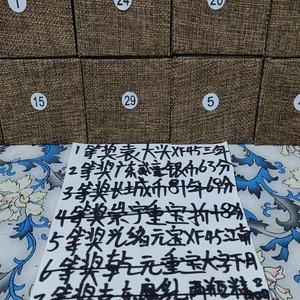 1 24 20
15 29 5
1等奖袁大头XF45三年
2等奖广东龙银币63分
3等奖长城币81年69分
4等奖崇宁重宝折十8分
5等奖光绪元宝XF45江南
6等奖乾元重宝大字 月
7等奖